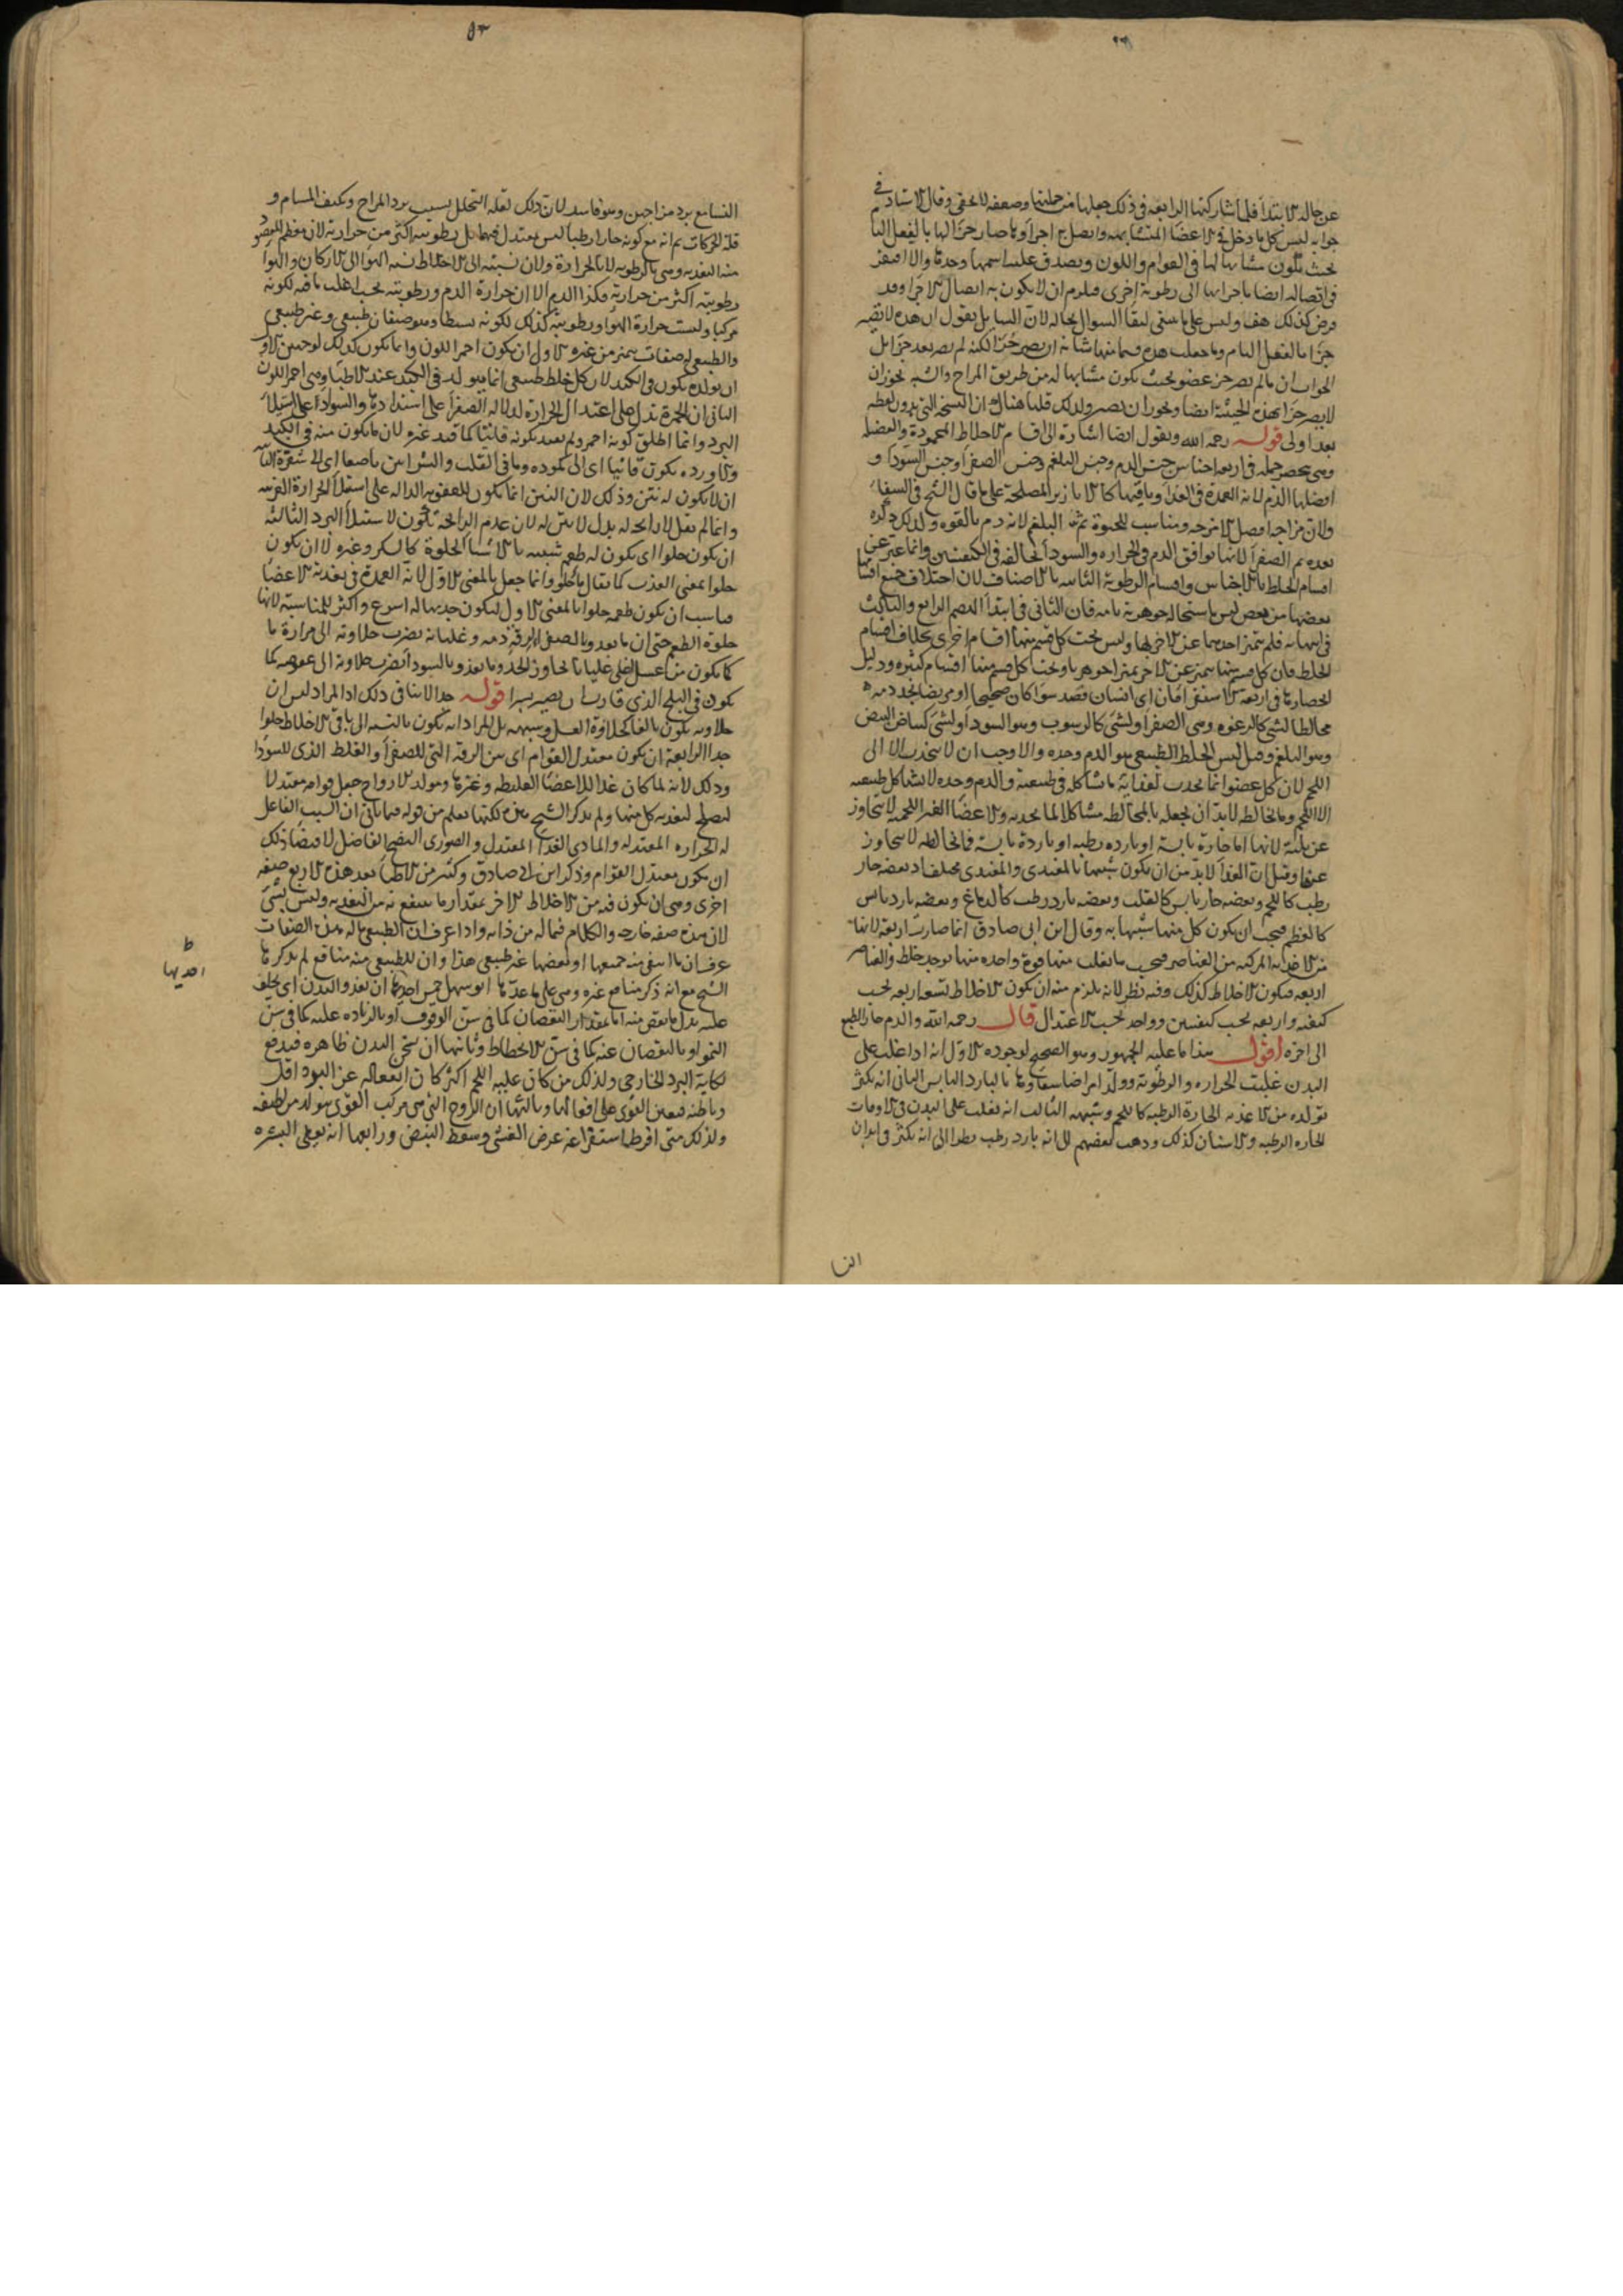 عن حاله الابتدا فلما شاركتها الرابعه فى ذلك جعلها من جملتها وضعفه لا يخفى وقال الاستاد فى
جوابه ليس كل ما دخل فى الاعضا المتشابهه واتصل باجزا وما صار جزا لها بالفعل التا
بحيث يكون مشابها لها فى القوام واللون ويصدق عليه اسمها وحدها والا افتقر
فى اتصاله ايضا باجزايها الى رطوبة اخرى فيلزم ان لا يكون به اتصال الاجزا وقد
فرض كذلك هف وليس على ما ينبغى لبقا السوال بحاله لان السايل يقول ان هذه لا تصير
جزا بالفعل التام وما جعلت هذه قسما منها شانه ان يصير جزا لكنه لم يصر بعد جزا بل
الجواب ان ما لم يصر جز عضو بحيث يكون مشابها له من طريق المزاج والشبه يجوز ان
لا يصير جزا بهذه الحيثية ايضا ويجوز ان يصير ولذلك قلنا هنالك ان النسخة التى بدون لفظه
بعد اولى قوله رحمه الله ونقول ايضا اشارة الى اقسام الاخلاط المحمودة والفضليه
وهى منحصر جمله فى اربعة اجناس جنس الدم وجنس البلغم وجنس الصفرا وجنس السودا و
افضلها الدم لانه العمدة فى الغذا وباقيها كالابازير المصلحة على ما قال الشيخ فى الشفا
ولان مزاجه افضل الامزجه ومناسب للحيوة ثم البلغم لانه دم بالقوه ولذلك ذكره
بعده ثم الصفرا لانها توافق الدم فى الحراره والسودا تخالفه فى الكيفيتين وانما عبر عن
اقسام الخلط بالاجناس واقسام الرطوبة الثانيه بالاصناف لان اختلاف جميع اقسا
بعضها من بعض ليس باستحاله جوهرية تامه فان الثانى فى ابتدا الهضم الرابع والثالث
فى انتهايه فلم يتميز احدهما عن الاخر بها وليس تحت كل قسم منها اقسام اخرى بخلاف اقسام
الخلط فان كل قسم منها يتميز عن الاخر تميزا جوهريا وتحت كل قسم منها اقسام كثيره ودليل
انحصارها فى اربعة الاستقرا فان اى انسان فصد سوا كان صحيحا او مريضا نجد دمه
مخالطا لشى كالرغوه وهى الصفرا ولشى كالرسوب وهو السودا ولشى كبياض البيض
وهو البلغم وقيل ليس الخلط الطبيعى هو الدم وحده والا وجب ان لا ينجذب الا الى
اللحم لان كل عضو انما يجذب لغذايه ما يشاكله فى طبيعته والدم وحده لا يشاكل طبيعه
الا اللحم وما يخالطه لا بد ان يجعله بالمخالطه مشاكلا لما يجذبه والاعضا الغير اللحميه لا يتجاوز
عن ثلثة لانها اما حارة يابسة او بارده رطبه او باردة يابسة فما يخالطه لا يتجاوز
عنها وقيل ان الغذا لا بد من ان يكون شبيها بالمغتذى والمغتذى مختلف اذ بعضه حار
رطب كاللحم وبعضه حار يابس كالقلب وبعضه بارد رطب كالدماغ وبعضه بارد يابس
كالعظم فيجب ان يكون كل منها شبيها به وقال ابن ابى صادق انما صارت اربعة لانها
من الاغذيه المركبه من العناصر فيجب ما يغلب منها قوة واحده منها يوجد خلط والعناصر
اربعه فيكون الاخلاط كذلك وفيه نظر لانه يلزم منه ان يكون الاخلاط تسعه اربعه بحسب
كيفيه واربعه بحسب كيفيتين وواحد بحسب الاعتدال قال رحمه الله والدم حار الطبع
الى اخره اقول هذا ما عليه الجمهور وهو الصحيح لوجوه الاول انه اذا غلب على
البدن غلبت الحراره والرطوبة وولد امراضا شفاوها بالبارد اليابس الثانى انه يكثر
تولده من الاغذيه الحارة الرطبه كاللحم وشبهه الثالث انه يغلب على البدن فى الاوقات
الحاره الرطبه والاسنان كذلك وذهب بعضهم الى انه بارد رطب نظرا الى انه يكثر فى ابدان
النسا مع برد مزاجهن وهو فاسد لان ذلك لقله التحلل بسبب برد المزاج وتكثف المسام و
قلة الحركات ثم انه مع كونه حارا رطبا ليس بمعتدل فيهما بل رطوبته اكثر من حرارته لان معظم المقصود
منه التغذيه وهى بالرطوبه لا بالحرارة ولان نسبته الى الاخلاط نسبه الهوا الى الاركان والهوا
رطوبته اكثر من حرارته فكذا الدم الا ان حرارة الدم ورطوبته بحسب اغلب ما فيه لكونه
مركبا وليست حرارة الهوا ورطوبته كذلك لكونه بسيطا وهو صنفان طبيعى وغير طبيعى
والطبيعى له صفات يتميز من غيره الاول ان يكون احمر اللون وانما يكون كذلك لوجهين الاو
ان تولده يكون فى الكبد لان كل خلط طبيعى انما يتولد فى الكبد عند الاطبا وهى احمر اللون
الثانى ان الحمرة تدل على اعتدال الحرارة لدلاله الصفرا على اشتدادها والسودا على استيلا
البرد وانما اطلق كونه احمر ولم يقيد بكونه قانيا كما قيد غيره لان ما يكون منه فى الكبد
والاورده يكون قانيا اى الى كموده وما فى القلب والشرايين ناصعا اى الى شقرة الثا
ان لا يكون له نتن وذلك لان النتن انما يكون للعفونه الداله على استيلا الحرارة الغريبه
وانما لم يقل لا رايحة له بدل لا نتن له لان عدم الرايحة يكون لاستيلا البرد الثالثه
ان يكون حلوا اى يكون له طعم شبيه بالاشيا الحلوة كالسكر وغيره لا ان يكون
حلوا بمعنى العذب كما يقال ما حلو وانما جعل بالمعنى الاول لانه العمدة فى تغذية الاعضا
فناسب ان يكون طعمه حلوا بالمعنى الاول ليكون جذبها له اسرع واكثر للمناسبة لانها
حلوة الطعم حتى ان ما يعدوها الصفرا لرقة دمه وغليانه يضرب حلاوته الى مرارة ما
كما يكون من عسل اغلى غليانا تجاوز الحد وما يغذو بالسودا يضرب حلاوته الى عفوصه كما
يكون فى البلح الذى قارب ان يصير بسرا قوله جدا لا ينافى ذلك اذ المراد ليس ان
حلاوته يكون بالغا كحلاوة العسل وشبهه بل المراد انه يكون بالنسبه الى باقى الاخلاط حلوا
جدا الرابعة ان يكون معتدل القوام اى بين الرقه التى للصفرا والغلظ الذى للسودا
وذلك لانه لما كان غذا للاعضا الغليظه وغيرها ومولد للارواح جعل قوامه معتدلا
ليصلح لتغذيه كل منها ولم يذكر الشيخ هذه لكنها تعلم من قوله فيما ياتى ان السبب الفاعل
له الحراره المعتدله والمادى الغذا المعتدل والصورى النضج الفاضل لاقتضا ذلك
ان يكون معتدل القوام وذكر ابن ابى صادق وكثير من الاطبا بعد هذه الاربع صفه
اخرى وهى ان يكون فيه من الاخلاط الاخر بمقدار ما ينتفع به من التغذيه وليس بشى
لان هذه صفه خارجه والكلام فيما له من ذاته واذا عرف ان الطبيعى ما له هذه الصفات
عرف ان ما انتفى منه جميعها او بعضها غير طبيعى هذا وان للطبيعى منه منافع لم يذكرها
الشيخ مع انه ذكر منافع غيره وهى على ما عدها ابو سهل خمس احديها ان يغذو البدن اى يخلف
عليه بدل ما نقص منه اما بمقدار النقصان كما فى سن الوقوف او بالزياده عليه كما فى سن
النمو او بالنقصان عنه كما فى سن الانحطاط وثانيها ان يسخن البدن ظاهره فيدفع
نكاية البرد الخارجى ولذلك من كان عليه اللحم اكثر كان انفعاله عن البرد اقل
وباطنه فيعين القوى على افعالها وثالثها ان الروح التى هى مركب القوى يتولد من لطيفه
ولذلك متى افرط استفراغه عرض الغشى وسقط النبض ورابعها انه يعطى البشره
ط
احديها
النسا